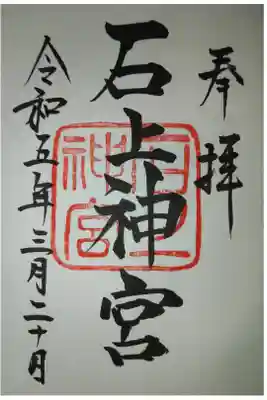 奉拝
石上神宮
石上神宮
令和五年三月二十月